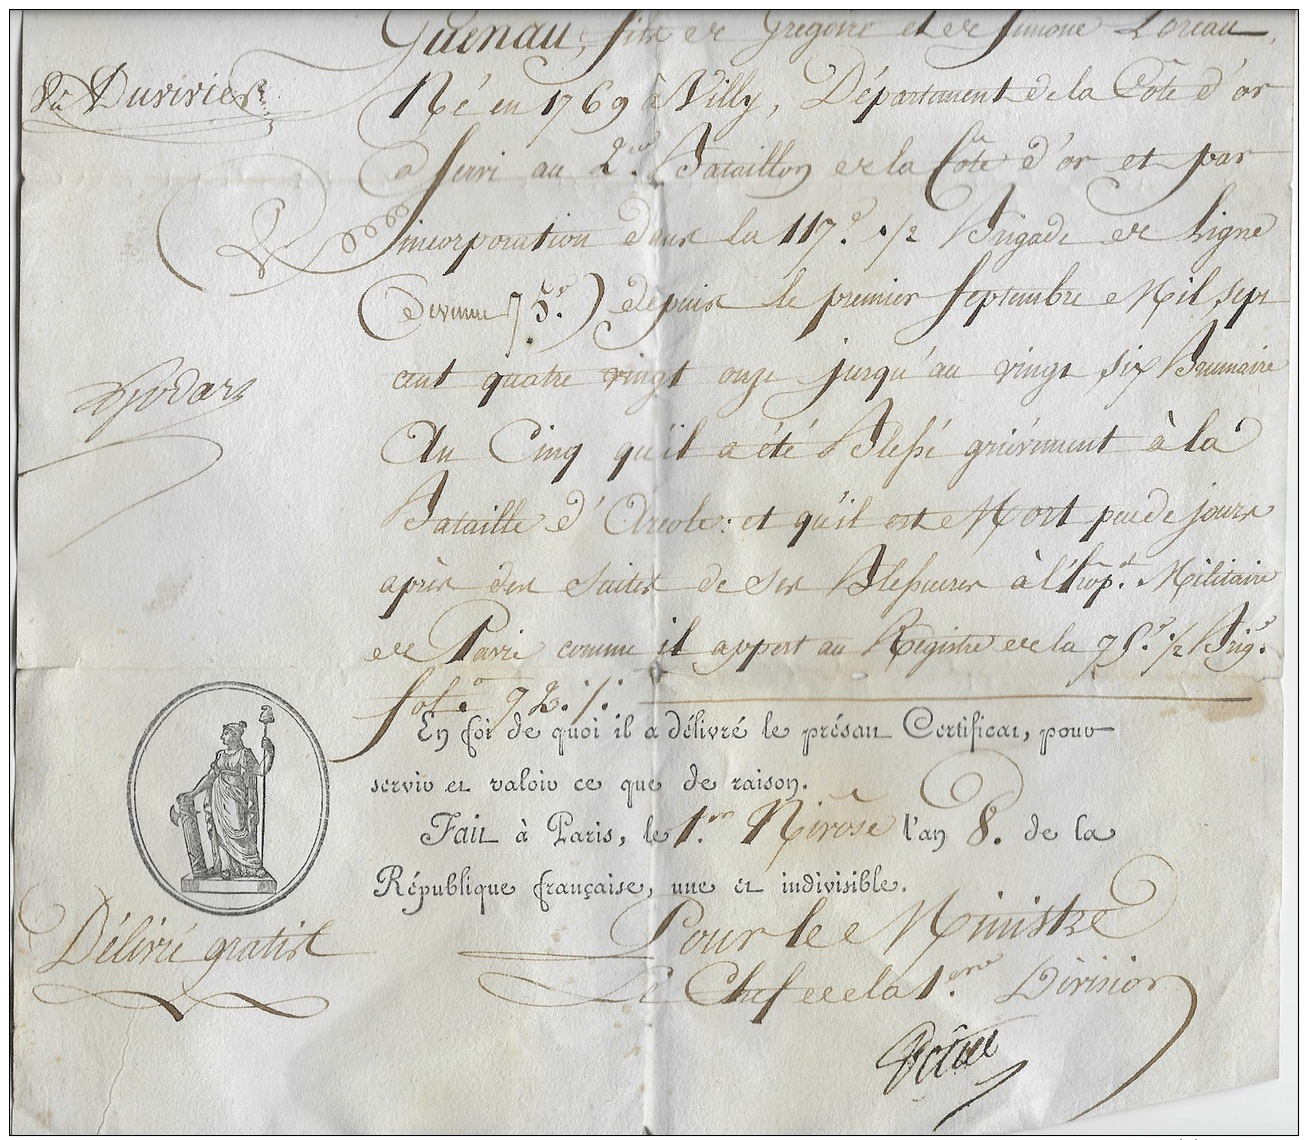 Guenau, fils de Grégoire et de Simone Loreau,
Vu Duvivier
Né en 1769 à Villy, Département de la Côte d'or
a servi au 2.e Bataillon de la Côte d'or et par
incorporation dans la 117.e 1/2 Brigade de Ligne
(devenue 75.e) depuis le premier Septembre Mil sept
cent quatre vingt onze jusqu'au vingt six Brumaire
An Cinq qu'il a été Blessé grièvement à la
Bataille d'Arcole: et qu'il est Mort peu de jours
après des suites de ses Blessures à l'hop.al Militaire
de Pavie comme il appert au Registre de la 75.e 1/2 Brig.e
fol.o 72./.
En foi de quoi il a délivré le présent Certificat, pour
servir et valoir ce que de raison.
Fait à Paris, le 1.er Nivôse l'an 8. de la
République française, une et indivisible.
Délivré gratis
Pour le Ministre
Le Chef de la 1.ere Division